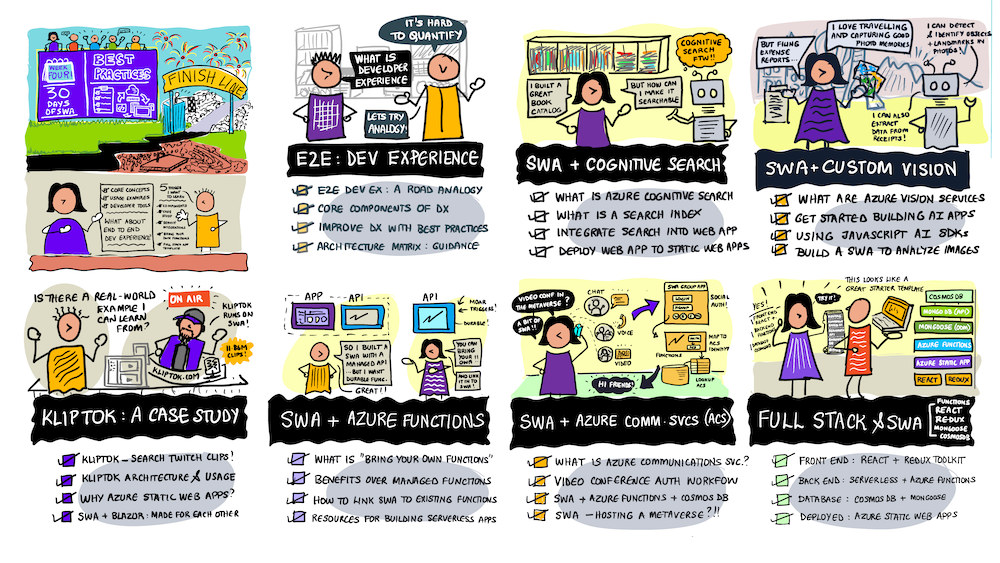 WEEK
FOUR!
30
DAYS
OF SWA
BEST
PRACTICES
FINISH LINE
CORE CONCEPTS
USAGE EXAMPLES
DEVELOPER TOOLS
WHAT ABOUT
END TO END
DEV EXPERIENCE?
5 THINGS
I WANT
TO LEARN
IT'S HARD
TO QUANTIFY
WHAT IS
DEVELOPER
EXPERIENCE
LETS TRY
ANALOGY:
E2E: DEV EXPERIENCE
E2E DEV EX: A ROAD ANALOGY
CORE COMPONENTS OF DX
IMPROVE DX WITH BEST PRACTICES
ARCHITECTURE MATRIX: GUIDANCE
COGNITIVE
SEARCH
FTW!!
I BUILT A
GREAT
BOOK
CATALOG
BUT HOW CAN
I MAKE IT
SEARCHABLE
SWA + COGNITIVE SEARCH
WHAT IS AZURE COGNITIVE SEARCH
WHAT IS A SEARCH INDEX
INTEGRATE SEARCH INTO WEB APP
DEPLOY WEB APP TO STATIC WEB APPS
I LOVE TRAVELLING
AND CAPTURING GOOD
PHOTO MEMORIES
BUT FILING
EXPENSE
REPORTS...
I CAN DETECT
& IDENTIFY OBJECTS
+ LANDMARKS IN
PHOTOS!
I CAN ALSO
EXTRACT
DATA FROM
RECEIPTS!
SWA+CUSTOM VISION
WHAT ARE AZURE VISION SERVICES
GET STARTED BUILDING AI APPS
USING JAVASCRIPT AI SDKs
BUILD A SWA TO ANALYZE IMAGES
IS THERE A REAL-WORLD
EXAMPLE I
CAN LEARN
FROM?
ON AIR
KLIPTOK
RUNS ON
SWA!
11 B&M
CLIPS!
KLIPTOK.COM
KLIPTOK: A CASE STUDY
KLIPTOK - SEARCH TWITCH CLIPS!
KLIPTOK ARCHITECTURE & USAGE
WHY AZURE STATIC WEB APPS?
SWA + BLAZOR: MADE FOR EACH OTHER
APP
API
API
MOAR
TRIGGERS!
DURABLE!
SO I BUILT A
SWA WITH A
MANAGED API
...BUT I WANT
DURABLE FUNC.
GREAT!!
YOU CAN
BRING
YOUR
OWN
AND LINK
IT IN TO
SWA!
SWA + AZURE FUNCTIONS
WHAT IS "BRING YOUR OWN FUNCTIONS"
BENEFITS OVER MANAGED FUNCTIONS
HOW TO LINK SWA TO EXISTING FUNCTIONS
RESOURCES FOR BUILDING SERVERLESS APPS
VIDEO CONF IN
THE METAVERSE?
A BIT OF
SWA!!
CHAT
VOICE
VIDEO
HI FRIENDS!
SWA GROUP APP
LOGIN
SOCIAL
AUTH!
MAP TO
ACS
IDENTITY
FUNCTIONS
LOOKUP
ACS
SWA + AZURE COMM. SVCS (ACS)
WHAT IS AZURE COMMUNICATIONS SVC.?
VIDEO CONFERENCE AUTH WORKFLOW
SWA + AZURE FUNCTIONS + COSMOS DB
SWA - HOSTING A METAVERSE?!!
THIS LOOKS LIKE A
GREAT STARTER TEMPLATE
YES!
FRONT END
REACT +
TRY IT!
COSMOS DB
MONGO DB (API)
MONGOOSE (ODM)
AZURE FUNCTIONS
AZURE STATIC APP
REACT
REDUX
FULL STACK & SWA
FUNCTIONS
REACT
REDUX
MONGOOSE
COSMOSDB
FRONT END: REACT + REDUX TOOLKIT
BACK END: SERVERLESS + AZURE FUNCTIONS
DATABASE: COSMOS DB + MONGOOSE
DEPLOYED: AZURE STATIC WEB APPS